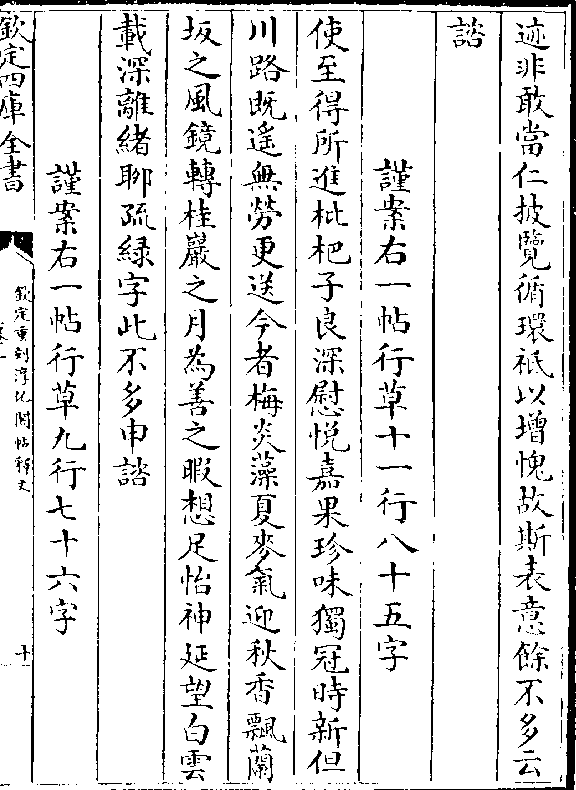 迹非敢當仁披覽循環祇以增愧故斯表意餘不多云
諮
謹案右一帖行草十一行八十五字
使至得所進枇杷子良深慰悅嘉果珍味獨冠時新但
川路既遙無勞更送今者梅炎藻夏麥氣迎秋香飄蘭
坂之風鏡轉桂巖之月為善之暇想足怡神延望白雲
載深離緒聊疏綠字此不多申諮
謹案右一帖行草九行七十六字
欽定四庫全書
欽定重刻淳化閣帖釋文
卷一
十